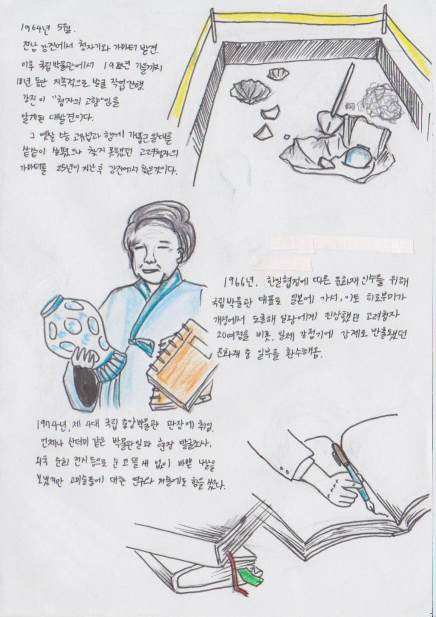 1964년 5월.
전남 강진에서 청자기와 가마터 발견
이후 국립박물관에서 가을까지
지속적으로 발굴 작업
강진이 "청자의 고향"임을
알게된 대발견이다.
그 옛날 스승 고유섭과 함께
샅샅이 찾지 못했던 고려청자의
가마터를 25년이 지난 후 강진에서 찾은것이다.
1966년. 한일협정에 따른 문화재 인수를 위해
국립박물관 대표로 일본에 가서, 이토 히로부미가
개성에서 도굴해 일왕에게 진상했던 고려청자
20여점을 비롯, 일제 강점기에 강제로 반출됐던
문화재 중 일부를 환수해옴.
1974년, 제 4대 국립 중앙박물관 관장에 취임.
언제나 산더미 같은 박물관일과 현장 발굴조사,
외국 순회 전시등으로 눈 코 뜰 새 없이 바쁜 나날을
보냈지만 고미술품에 대한 연구와 저술에도 힘을 썼다.